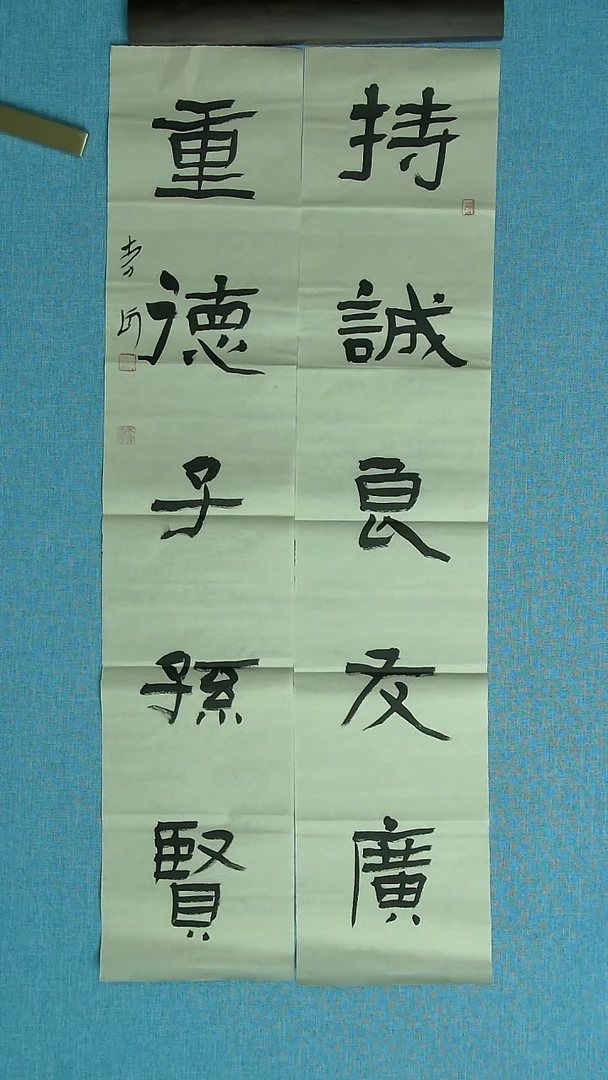 持誠良友廣
重德子孫賢